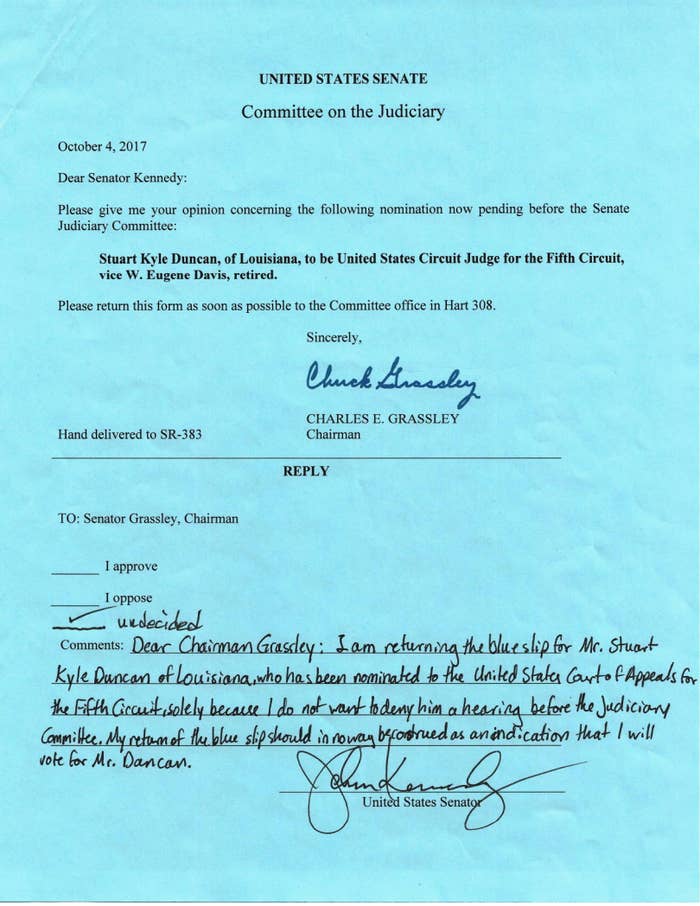 UNITED STATES SENATE
Committee on the Judiciary
October 4, 2017
Dear Senator Kennedy:
Please give me your opinion concerning the following nomination now pending before the Senate
Judiciary Committee:
Stuart Kyle Duncan, of Louisiana, to be United States Circuit Judge for the Fifth Circuit,
vice W. Eugene Davis, retired.
Please return this form as soon as possible to the Committee office in Hart 308.
Sincerely,
Chuck Grassley
CHARLES E. GRASSLEY
Hand delivered to SR-383 Chairman
REPLY
TO: Senator Grassley, Chairman
I approve
I oppose
✓ undecided
Comments: Dear Chairman Grassley: I am returning the blue slip for Mr. Stuart
Kyle Duncan of Louisiana, who has been nominated to the United States Court of Appeals for
the Fifth Circuit, solely because I do not want to deny him a hearing before the Judiciary
Committee. My return of the blue slip should in no way be construed as an indication that I will
vote for Mr. Dancan.
John Kennedy
United States Senator